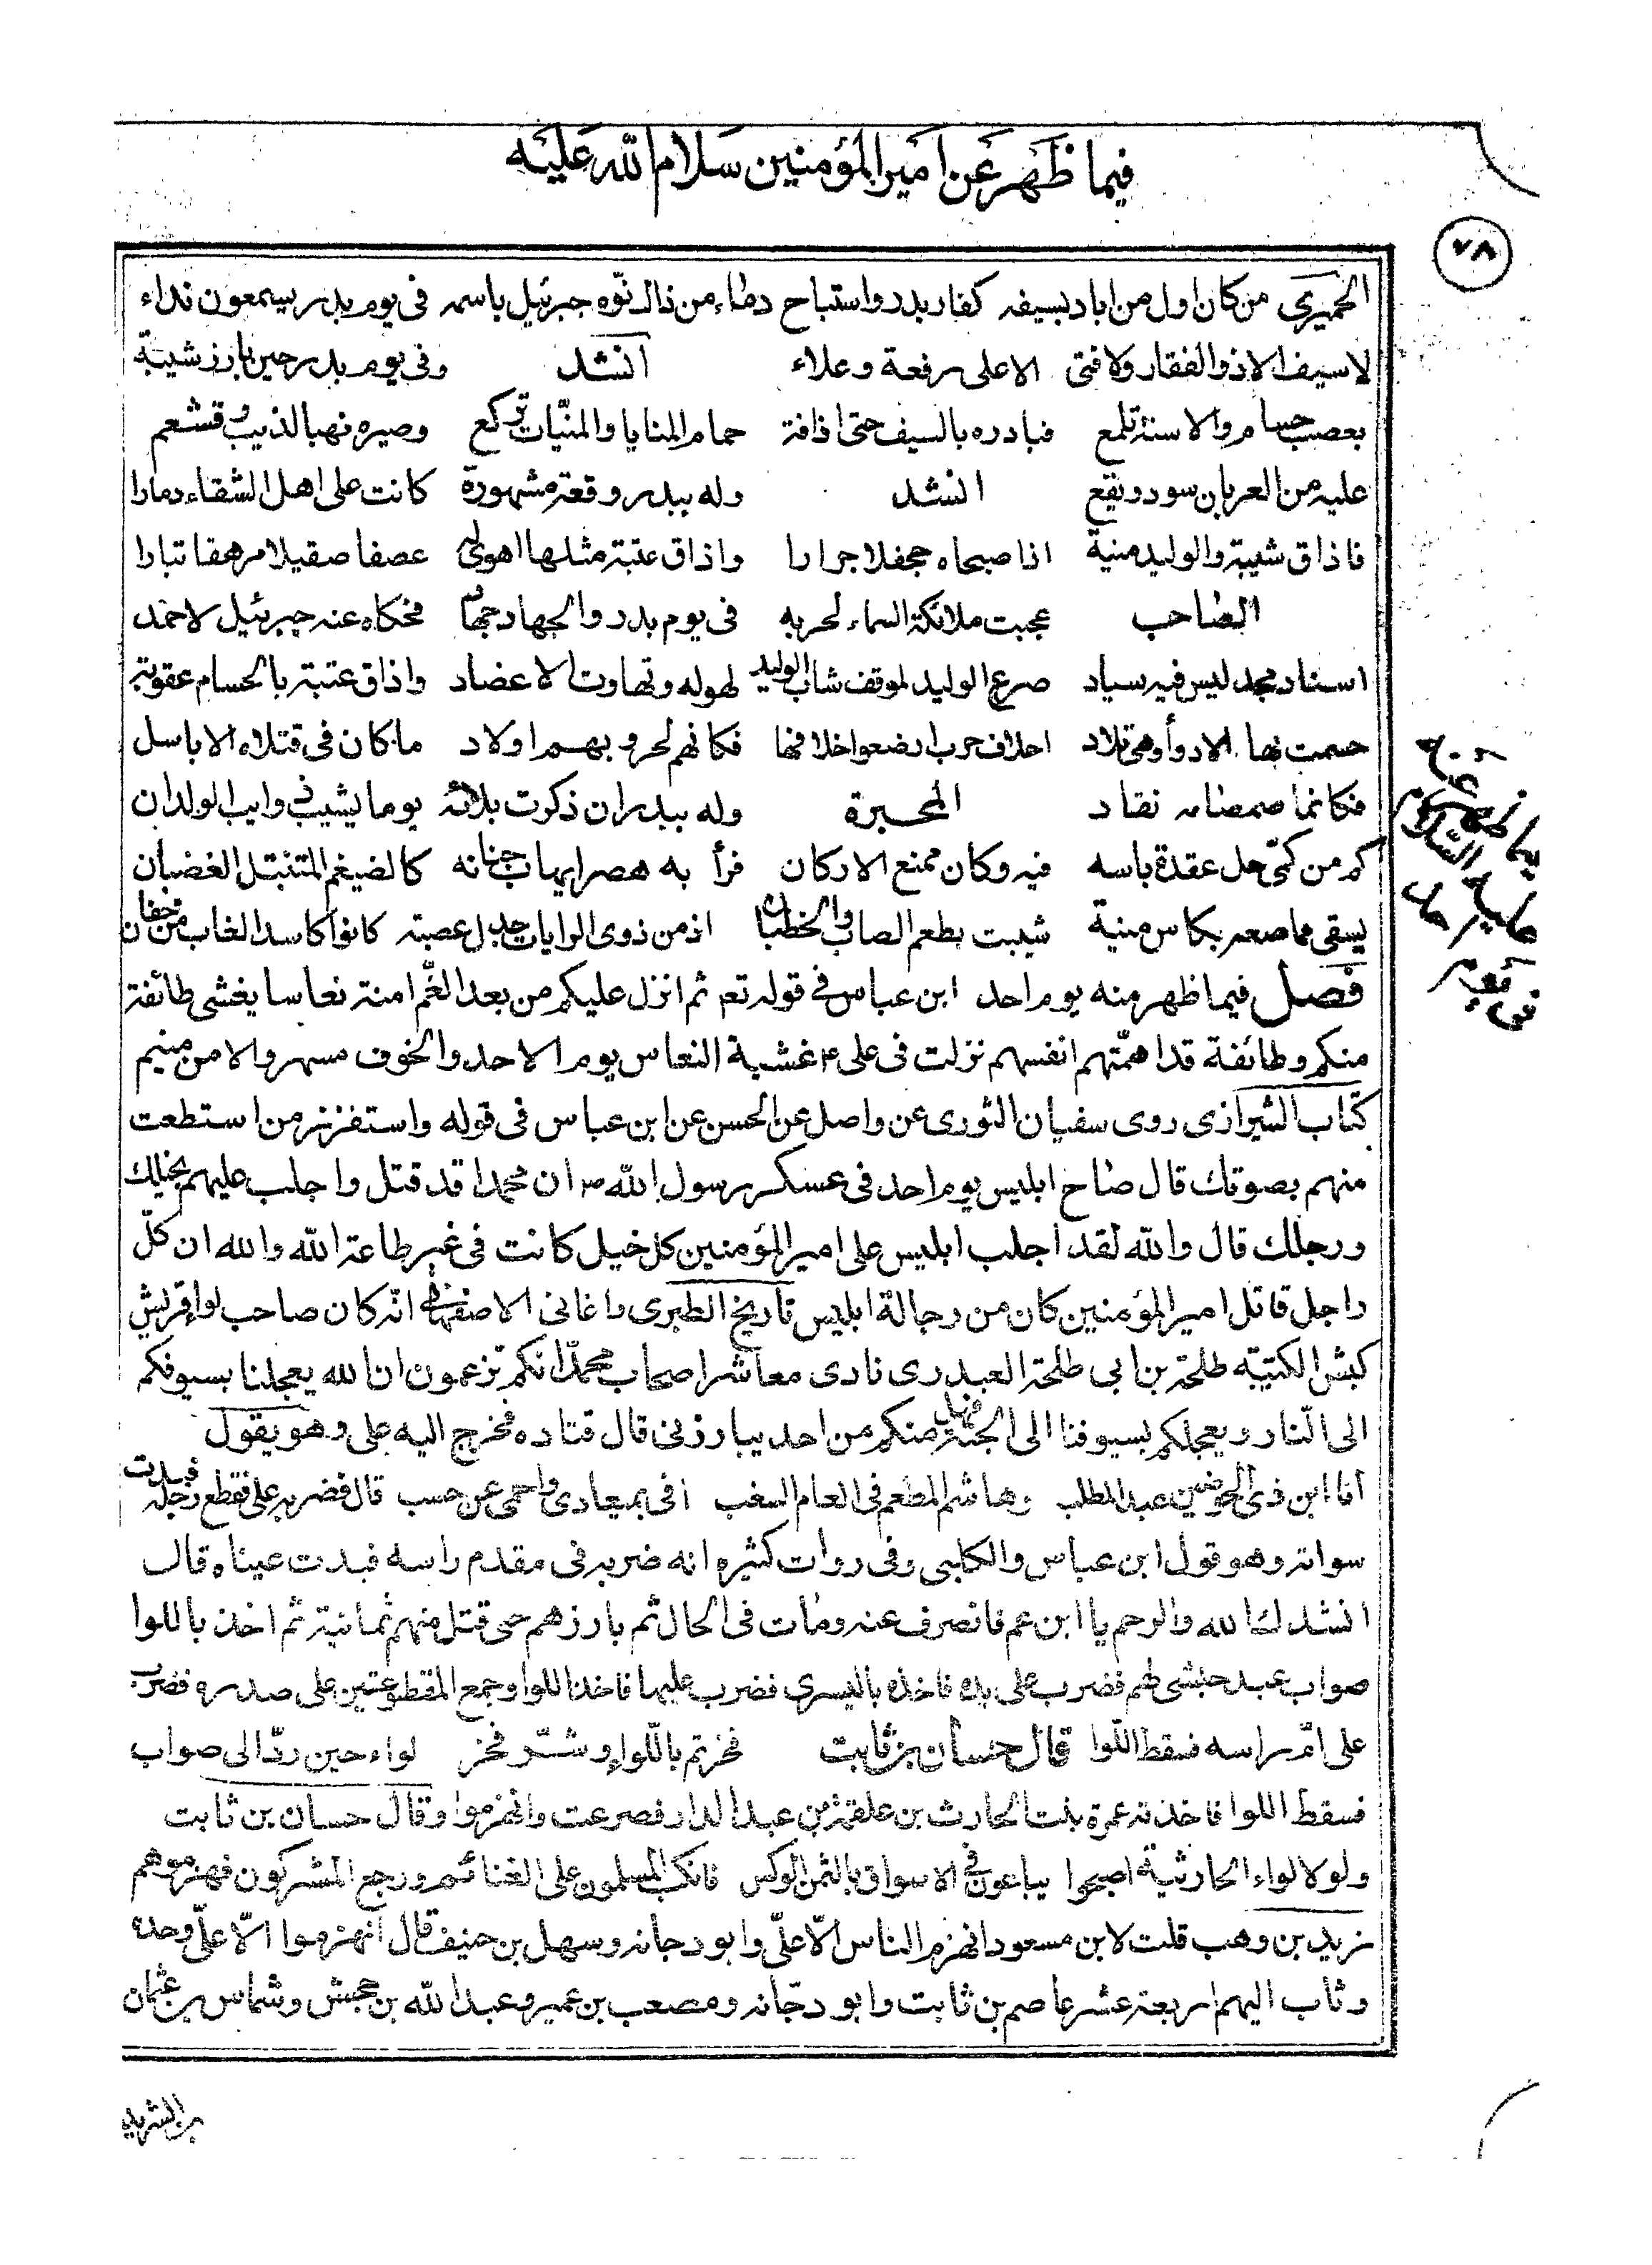 فيما ظهر عن امير المؤمنين سلام الله عليه
٧٨
الحميرى من كان اول من اباد بسيفه كفار بدر واستباح دماء من ذاك نوّه جبرئيل باسمه فى يوم بدر يسمعون نداء
لا سيف الا ذو الفقار ولا فتى الا على رفعة وعلاء انشد وفى يوم بدر حين بارز شيبة
بعضب حسام والاسنة تلمع فبادره بالسيف حتى اذاقه حمام المنايا والمنيّات تركع وصيره نهبا لذيب وقشعم
عليه من الغربان سود وبقع انشد وله ببدر وقعة مشهورة كانت على اهل الشقاء دمارا
فاذاق شيبة والوليد منية اذا صبحاه جحفلا جرارا واذاق عتبة مثلها اهوى له عضبا صقيلا مرهفا تبارا
الصاحب عجبت ملائكة السماء لحربه فى يوم بدر والجهاد جهاد فحكاه عنه جبرئيل لاحمد
اسناد مجد ليس فيه سياد صرع الوليد لموقف شاب الوليد لهوله وتهاوت الاعضاد واذاق عتبة بالحسام عقوبة
حسمت بها الادوأ وهى تلاد احلاف حرب ارضعوا اخلافها فكانهم لحروبهم اولاد ما كان فى قتلاه الا باسل
فكانما صمصامه نقاد المحبرة وله ببدر ان ذكرت بلائه يوما يشيب ذوايب الولدان
كم من كمىّ حل عقدة باسه فيه وكان ممنع الاركان فرأ به هصرا يهاب جنانه كالضيغم المتنبتل الغضبان
يسقى مماصعه بكاس منية شيبت بطعم الصاب والخطبان اذ من ذوى الرايات جدل عصبة كانوا كاسد الغاب من خفان
فصل فيما ظهر منه يوم احد ابن عباس فى قوله تع ثم انزل عليكم من بعد الغّم امنة نعاسا يغشى طائفة
منكم وطائفة قد اهمّتهم انفسهم نزلت فى على ع غشية النعاس يوم الاحد والخوف مسهر والامن منيم
كتاب الشيرازى روى سفيان الثورى عن واصل عن الحسن عن ابن عباس فى قوله واستفزز من استطعت
منهم بصوتك قال صاح ابليس يوم احد فى عسكر رسول الله ص ان محمدا قد قتل واجلب عليهم بخيلك
ورجلك قال والله لقد اجلب ابليس على امير المؤمنين كل خيل كانت فى غير طاعة الله والله ان كلّ
راجل قاتل امير المؤمنين كان من رجالة ابليس تاريخ الطبرى واغانى الاصفهانى انّه كان صاحب لواء قريش
كبش الكتيبه طلحة بن ابى طلحة العبدرى نادى معاشر اصحاب محمّد انكم تزعمون ان الله يعجلنا بسيوفكم
الى النّار ويعجلكم بسيوفنا الى الجنة فهل منكم من احد يبارزنى قال قتاده فخرج اليه على وهو يقول
انا ابن ذى الحوضين عبد المطلب وهاشم المطعم فى العام السغب افى بميعادى واحمى عن حسب قال فضربه على فقطع رجله فبدت
سواته وهو قول ابن عباس والكلبى وفى روات كثيره انه ضربه فى مقدم راسه فبدت عيناه قال
انشدك الله والرحم يا ابن عم فانصرف عنه ومات فى الحال ثم بارزهم حتى قتل منهم ثمانية ثم اخذ باللوا
صواب عبد حبشى لهم فضرب على يده فاخذه باليسرى فضرب عليها فاخذ اللوا وجمع المقطوعتين على صدره فضرب
على امّ راسه فسقط اللّوا قال حسان بن ثابت فخرتم باللّواء وشرّ فخر لواء حين ردّ الى صواب
فسقط اللوا فاخذته عمرة بنت الحارث بن علقمة من عبد الدار فصرعت وانهزموا وقال حسان بن ثابت
ولولا لواء الحارثية اصبحوا يباعون فى الاسواق بالثمن الوكس فانكب المسلمون على الغنائم ورجع المشركون فهزموهم
زيد بن وهب قلت لابن مسعود انهزم الناس الّا علىّ وابو دجانه وسهل بن حنيف قال انهزموا الّا علىّ وحده
وثاب اليهم اربعة عشر عاصم بن ثابت وابو دجّانه ومصعب بن عمير وعبد الله بن جحش وشماس بن عثمان
بن الشريد